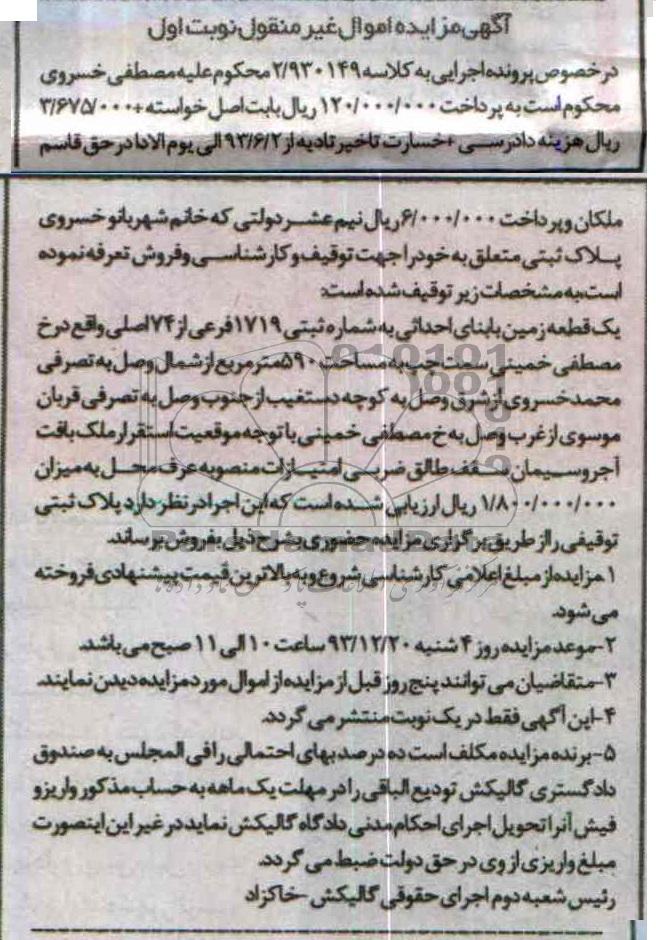 آگهی مزایده اموال غیر منقول نوبت اول
در خصوص پرونده اجرایی به کلاسه ۲/۹۳۰۱۴۹ محکوم علیه مصطفی خسروی
محکوم است به پرداخت ۱۲۰/۰۰۰/۰۰۰ ریال بابت اصل خواسته +۳/۶۷۵/۰۰۰
ریال هزینه دادرسی +خسارت تاخیر تادیه از ۹۳/۶/۲ الی یوم الادا در حق قاسم
ملکان و پرداخت ۶/۰۰۰/۰۰۰ ریال نیم عشر دولتی که خانم شهربانو خسروی
پلاک ثبتی متعلق به خود را جهت توقیف و کارشناسی و فروش تعرفه نموده
است، به مشخصات زیر توقیف شده است:
یک قطعه زمین با بنای احداثی به شماره ثبتی ۱۷۱۹ فرعی از ۷۴ اصلی واقع در خ
مصطفی خمینی سمت چپ به مساحت ۵۹۰ متر مربع از شمال وصل به تصرفی
محمد خسروی از شرق وصل به کوچه دستغیب از جنوب وصل به تصرفی قربان
موسوی از غرب وصل به خ مصطفی خمینی با توجه موقعیت استقرار ملک بافت
آجر و سیمان سقف طاق ضربی امتیازات منصوبه عرف محل به میزان
۱/۸۰۰/۰۰۰/۰۰۰ ریال ارزیابی شده است که این اجرا در نظر دارد پلاک ثبتی
توقیفی را از طریق برگزاری مزایده حضوری بشرح ذیل بفروش برساند.
۱.مزایده از مبلغ اعلامی کارشناسی شروع و به بالاترین قیمت پیشنهادی فروخته
می شود.
۲-موعد مزایده روز ۴ شنبه ۹۳/۱۲/۲۰ ساعت ۱۰ الی ۱۱ صبح می باشد.
۳-متقاضیان می توانند پنج روز قبل از مزایده از اموال مورد مزایده دیدن نمایند.
۴-این آگهی فقط در یک نوبت منتشر می گردد.
۵-برنده مزایده مکلف است ده درصد بهای احتمالی را فی المجلس به صندوق
دادگستری گالیکش تودیع الباقی را در مهلت یک ماهه به حساب مذکور واریز و
فیش آنرا تحویل اجرای احکام مدنی دادگاه گالیکش نماید در غیر این اینصورت
مبلغ واریزی از وی در حق دولت ضبط می گردد.
رئیس شعبه دوم اجرای حقوقی گالیکش -خاکزاد